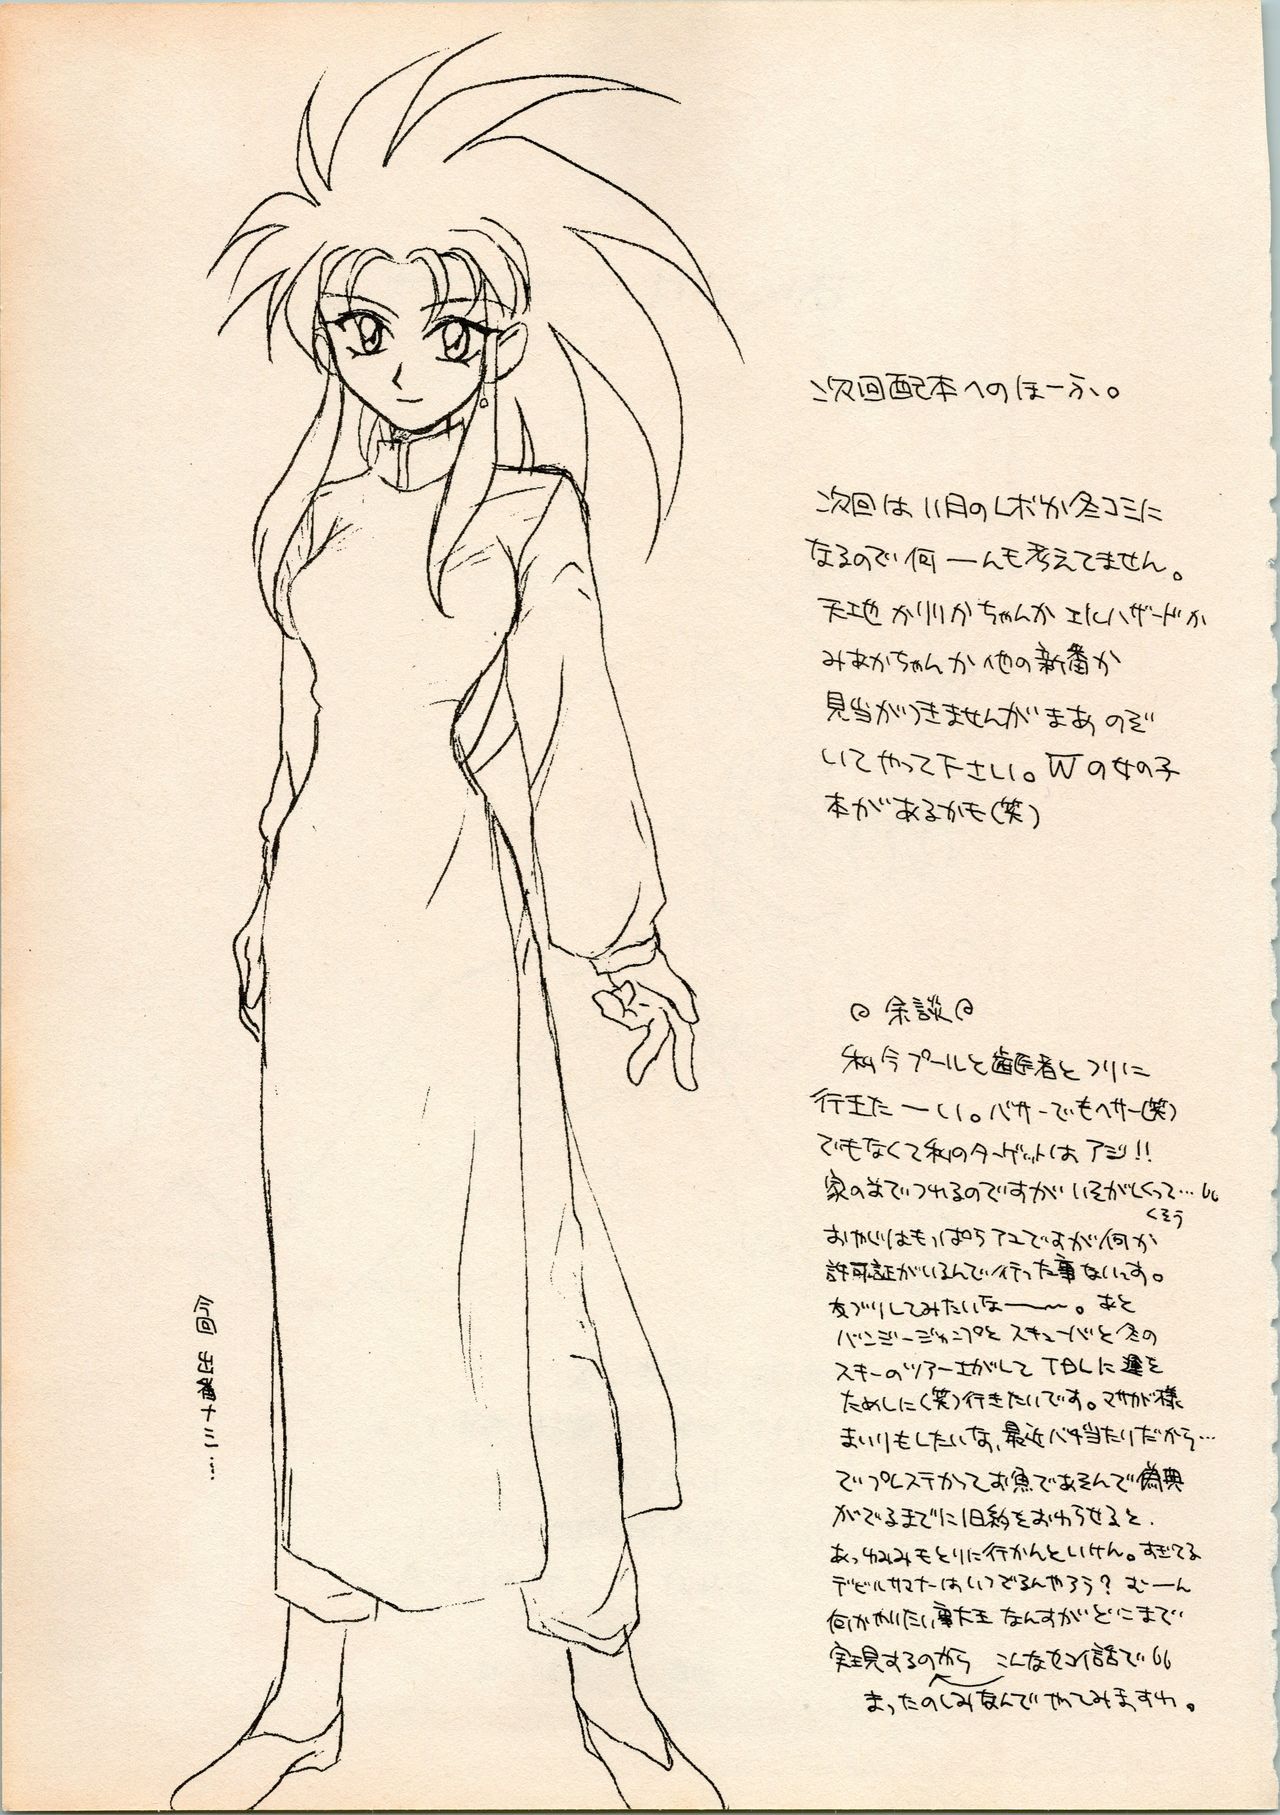 次回配本へのほーふ。
次回は11月のレボか冬コミに
なるので何ーんも考えてません。
天地かリリカちゃんかエルハザードか
みあかちゃんか他の新番か
見当がつきませんがまあのぞ
いてやって下さい。Wの女の子
本があるかも(笑)
余談
私今プールと歯医者とつりに
行きたーい。バサーでもヘサー(笑)
でもなくて私のターゲットはアジ!!
家の前でつれるのですがいそがしくって…
くそう
おやじはもっぱらアユですが何か
許可証がいるんで行った事ないっす。
友づりしてみたいなー〜。あと
バンジージャンプとスキューバと冬の
スキーのツアーさがして TDLに運を
ためしに(笑)行きたいです。マサカド様
まいりもしたいな、最近バチ当たりだから…
でプレステかってお魚であそんで偽典
がでるまでに旧約をおわらせると、
あっ みみもとりに行かんといけん。すぎてる
デビルサマナーはいつでるんやろう? むーん
何かやりたい事大王なんすがどこまで
実現するのやら こんなセコイ話で
まったのしみなんでやってみますわ。
今回 出番ナシ…